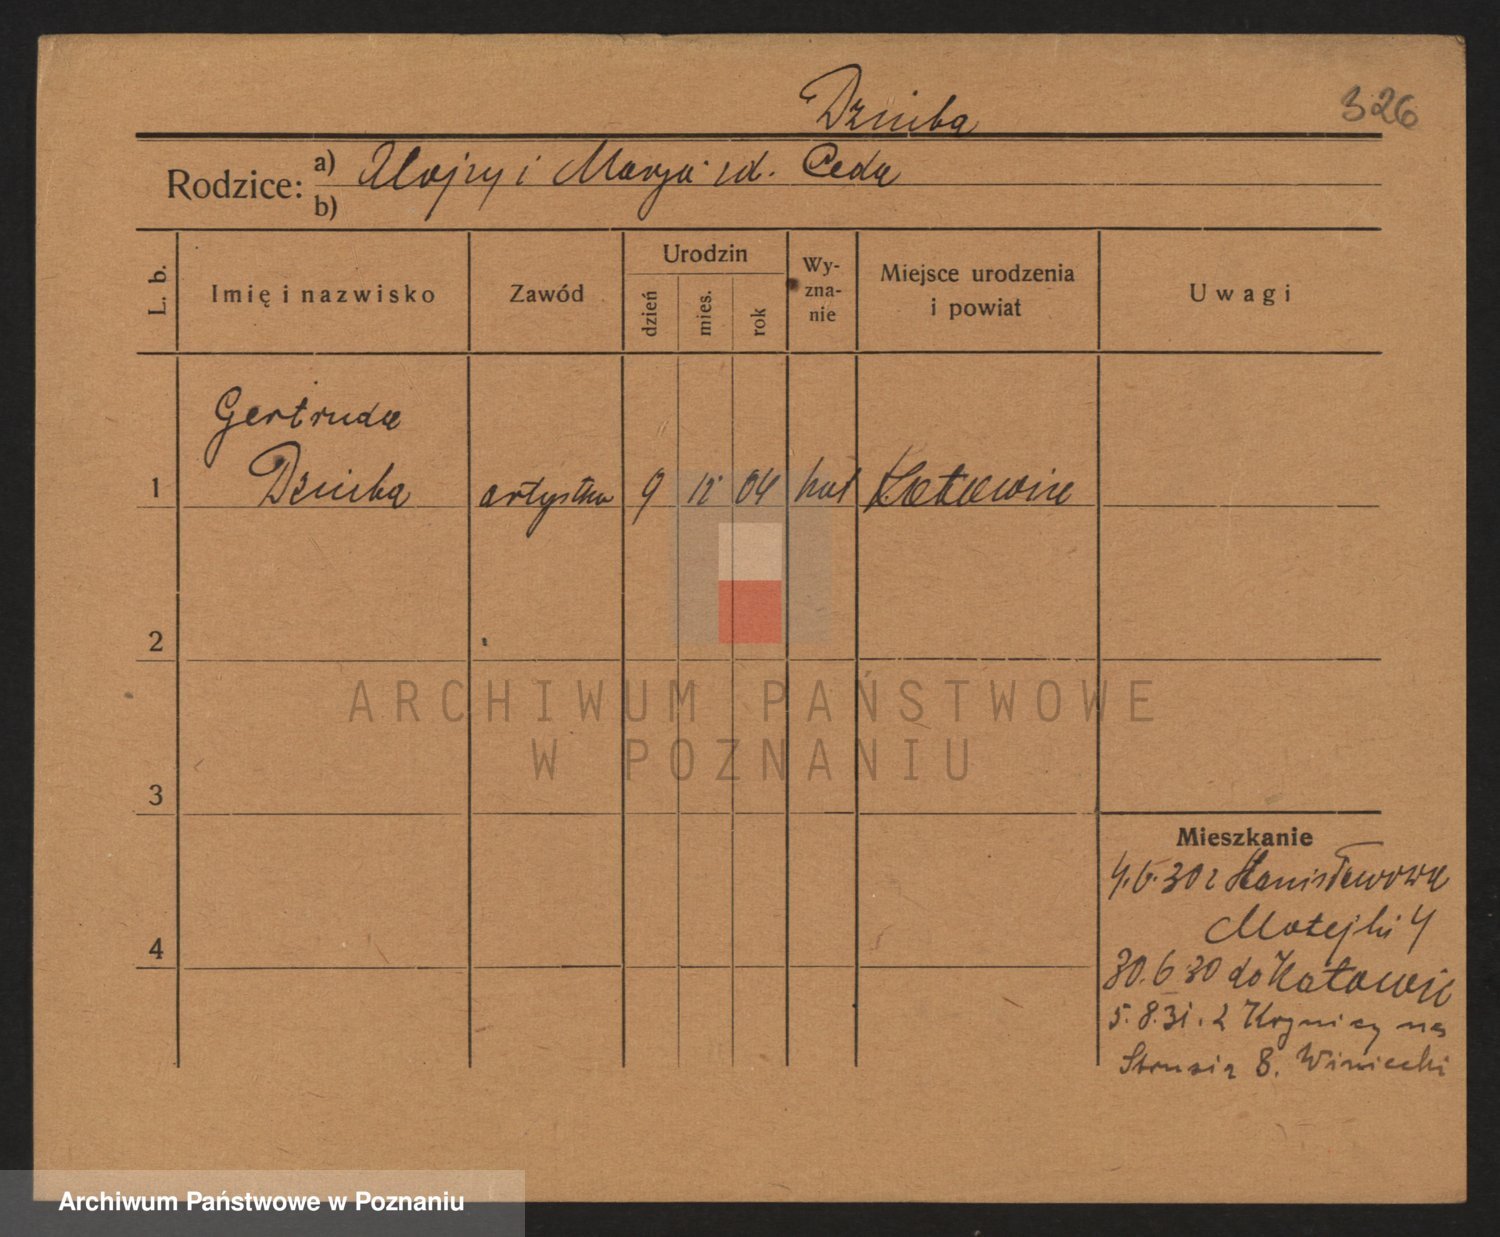 Dziuba
326
Rodzice: a) Alojzy i Marja zd. Ceda
b)
L. b. Imię i nazwisko Zawód Urodzin dzień mies. rok Wy-zna-nie Miejsce urodzenia i powiat Uwagi
Gertruda
1 Dziuba artystka 9 12 04 kat Katowice
2
3
4
Mieszkanie
4.6.30 z Stanisławowa
Matejki 4
30.6 30 do Katowic
5.8.31. z Krynicy na
Strusia 8. Winiecki
ARCHIWUM PAŃSTWOWE
W POZNANIU
Archiwum Państwowe w Poznaniu